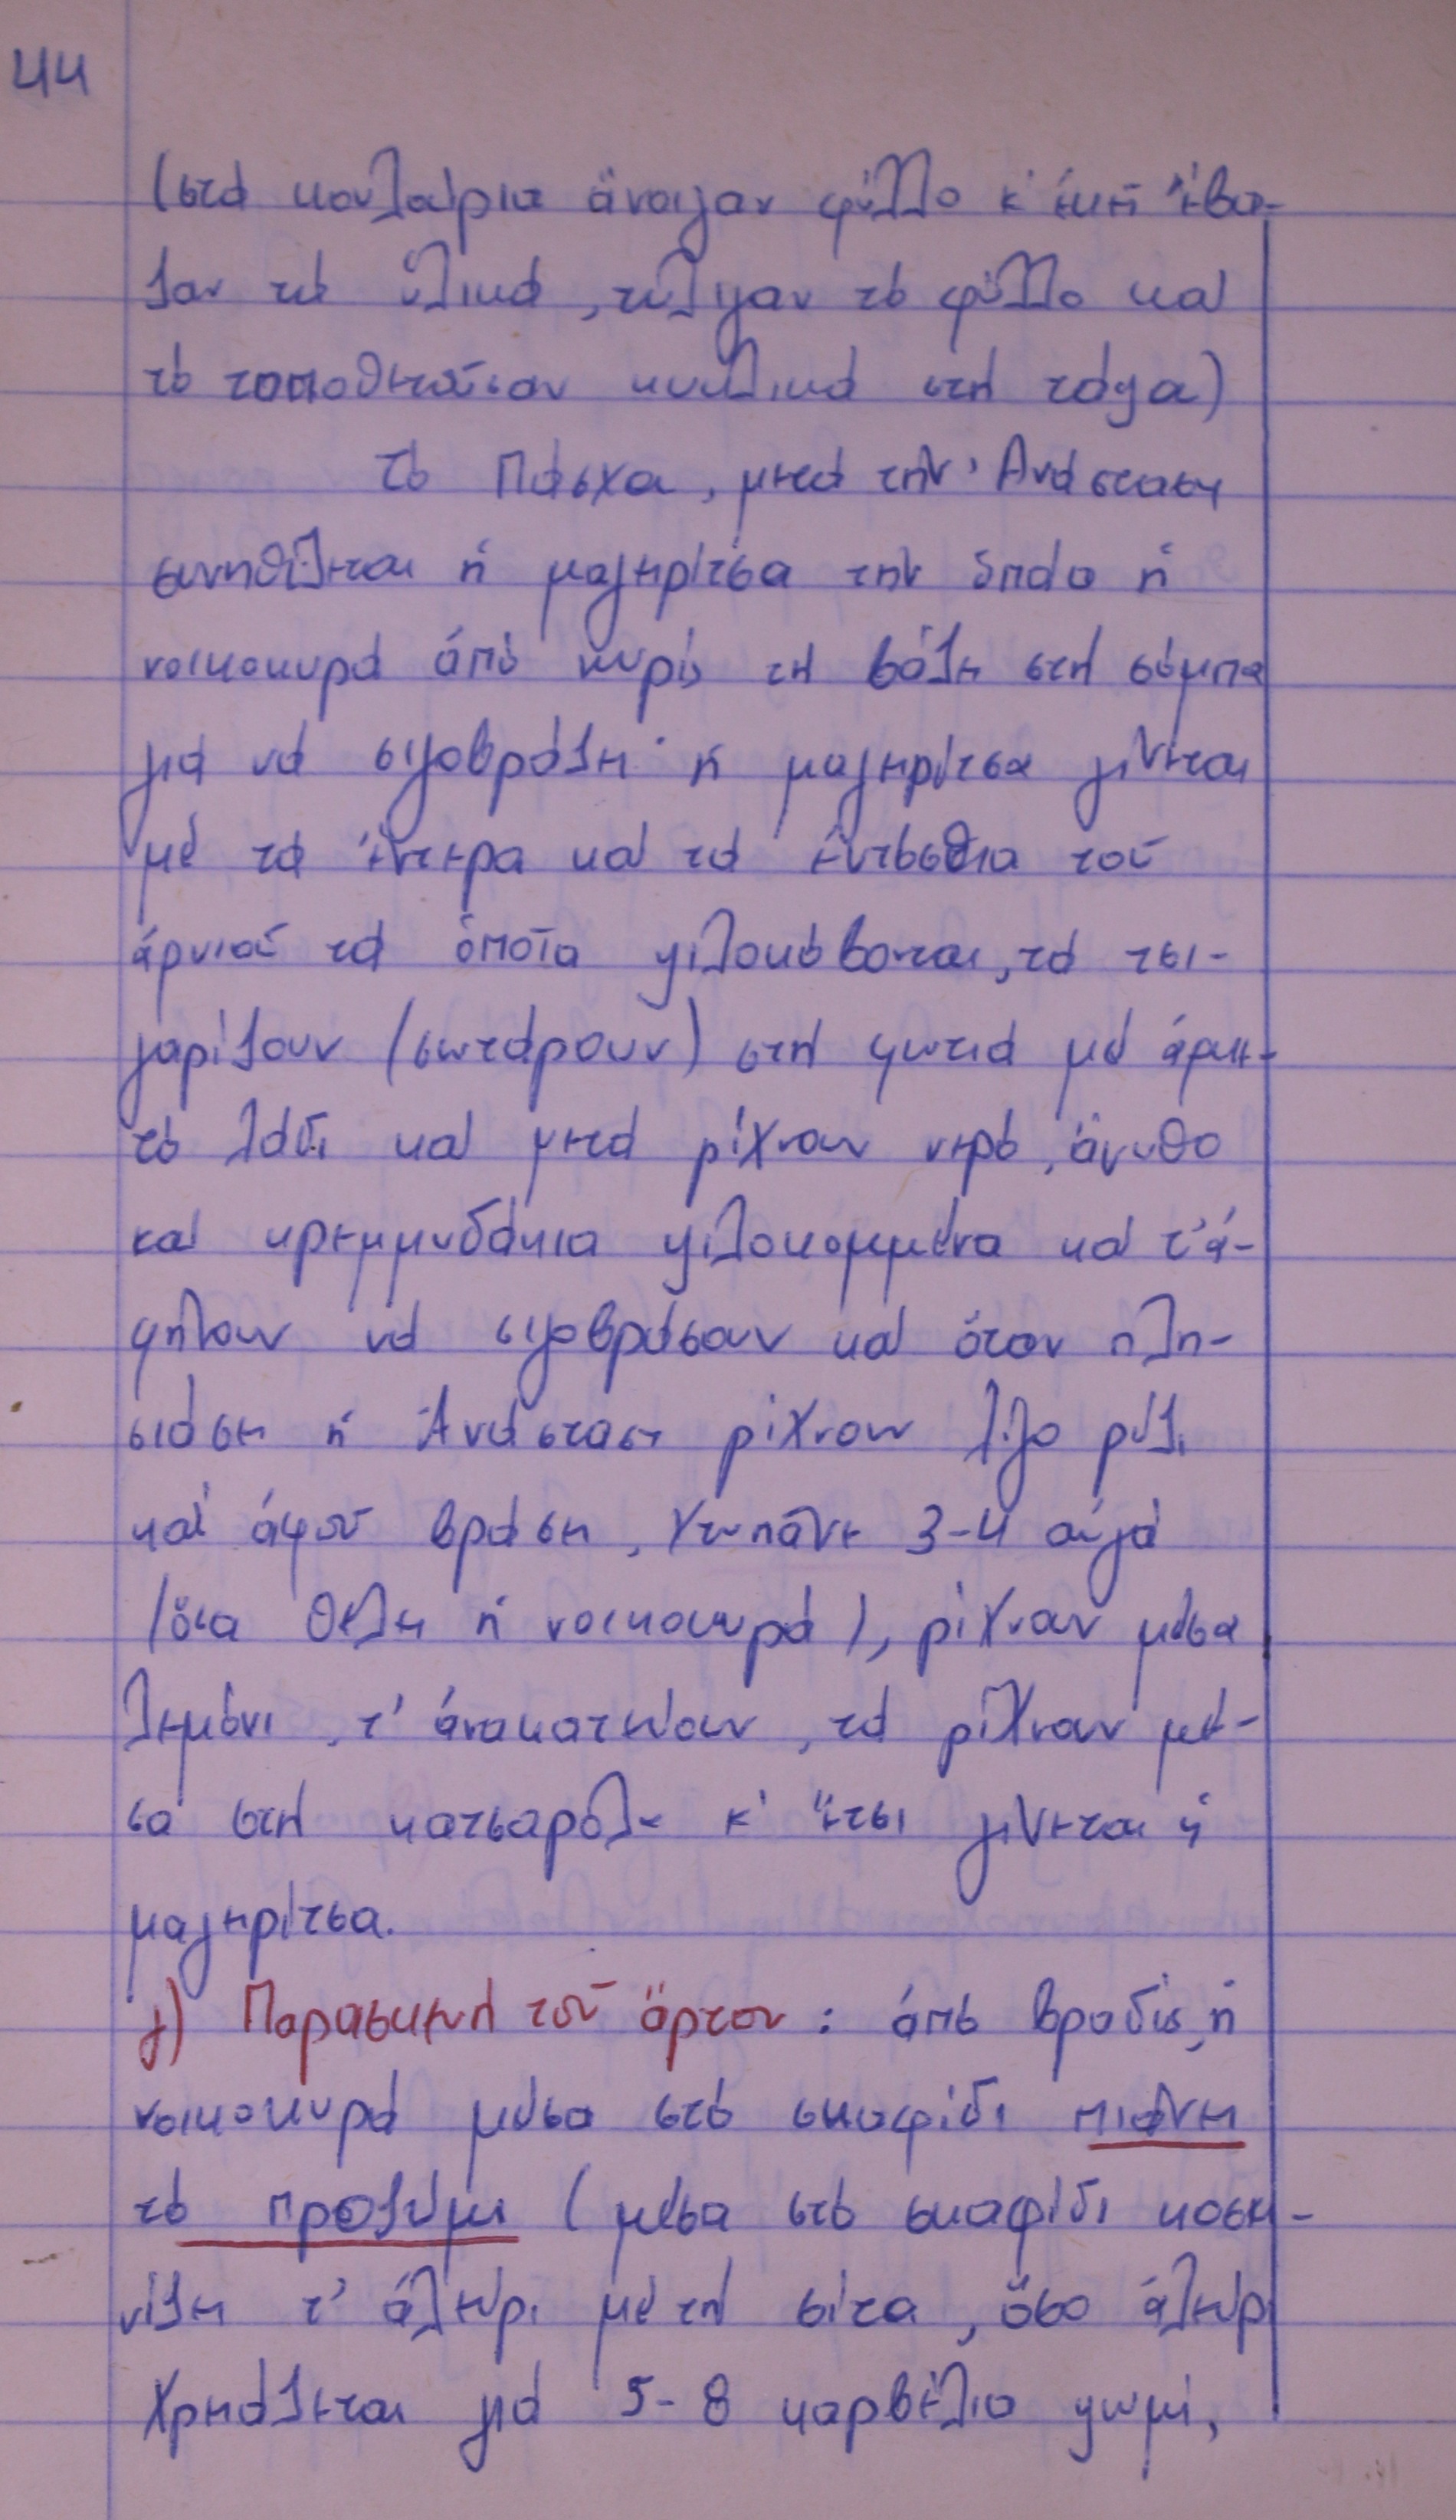 44
(στά κουλούρια ἄνοιγαν φύλλο κ' ἐκεῖ ἔβα-
ζαν τά ὑλικά, τύλιγαν τό φύλλο καί
τό τοποθετοῦσαν κυκλικά στή τάψα)
Τό Πάσχα, μετά τήν Ἀνάσταση
συνηθίζεται ἡ μαγειρίτσα τήν ὁποία ἡ
νοικοκυρά ἀπό νωρίς τή βάζει στή σόμπα
γιά νά σιγοβράζει· ἡ μαγειρίτσα γίνεται
μέ τά ἔντερα καί τά ἐντόσθια τοῦ
ἀρνιοῦ τά ὁποῖα ψιλοκόβονται, τά τσι-
γαρίζουν (σωτάρουν) στή φωτιά μέ ἀρκε-
τό λάδι καί μετά ρίχνουν νερό, ἄνυθο
καί κρεμμυδάκια ψιλοκομμένα καί τ' ἀ-
φήνουν νά σιγοβράσουν καί ὅταν πλη-
σιάσει ἡ Ἀνάσταση ρίχνουν λίγο ρύζι
καί ἀφοῦ βράσει, χτυπᾶνε 3-4 αὐγά
(ὅσα θέλει ἡ νοικοκυρά), ρίχνουν μέσα
λεμόνι, τ' ἀνακατεύουν, τά ρίχνουν μέ-
σα στή κατσαρόλα κ' ἔτσι γίνεται ἡ
μαγειρίτσα.
γ) Παρασκευή τοῦ ἄρτου: ἀπό βραδίς, ἡ
νοικοκυρά μέσα στό σκαφίδι πιάνει
τό προζύμι (μέσα στό σκαφίδι κοσκι-
νίζει τ' ἀλεύρι μέ τή σίτα, ὅσο ἀλεύρι
χρειάζεται γιά 5-8 καρβέλια ψωμί,